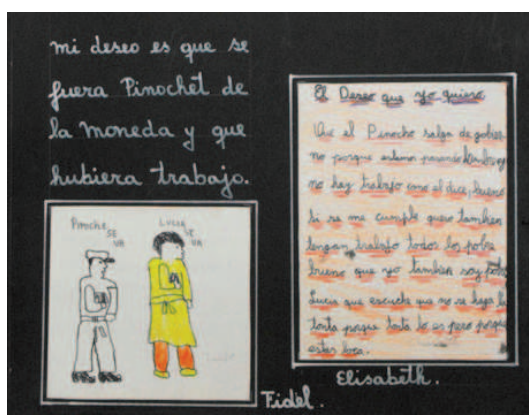 mi deseo es que se
fuera Pinochet de
la moneda y que
hubiera trabajo.
Pinoche
SE
VA
LUCIA
SE
VA
Fidel.
El Deseo que yo quiero
Que el Pinocho salga de gobier
no porque estamo pasando
no hay trabajo como el dice, bueno
si se me cumple quero tambien
tengan trabajo todos los pobre
bueno que yo tambien soy pobre
Lucia que escuche que no se haga la
tonta porque tonta lo es pero porque
estas loca.
Elisabeth.